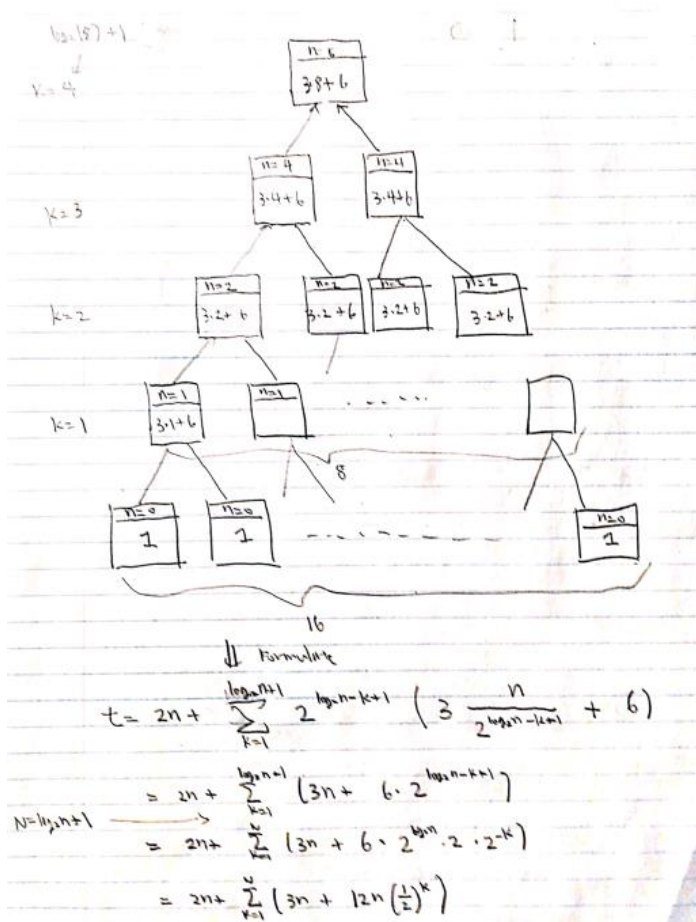 log₂(8)+1
n=8
3·8+6
k=4
n=4 n=4
3·4+6 3·4+6
k=3
n=2 n=2 n=2 n=2
3·2+6 3·2+6 3·2+6 3·2+6
k=2
n=1 n=1
3·1+6 ......
k=1
8
n=0 n=0 n=0
1 1 ------------ 1
16
⇓ Formulate
t = 2n + \sum_{k=1}^{log₂n+1} 2^{log₂n-k+1} ( 3 \frac{n}{2^{log₂n-k+1}} + 6 )
= 2n + \sum_{k=1}^{log₂n+1} (3n + 6 · 2^{log₂n-k+1})
N=log₂n+1
= 2n + \sum_{k=1}^{N} (3n + 6 · 2^{log₂n} · 2 · 2^{-k})
= 2n + \sum_{k=1}^{N} (3n + 12n (\frac{1}{2})^k)